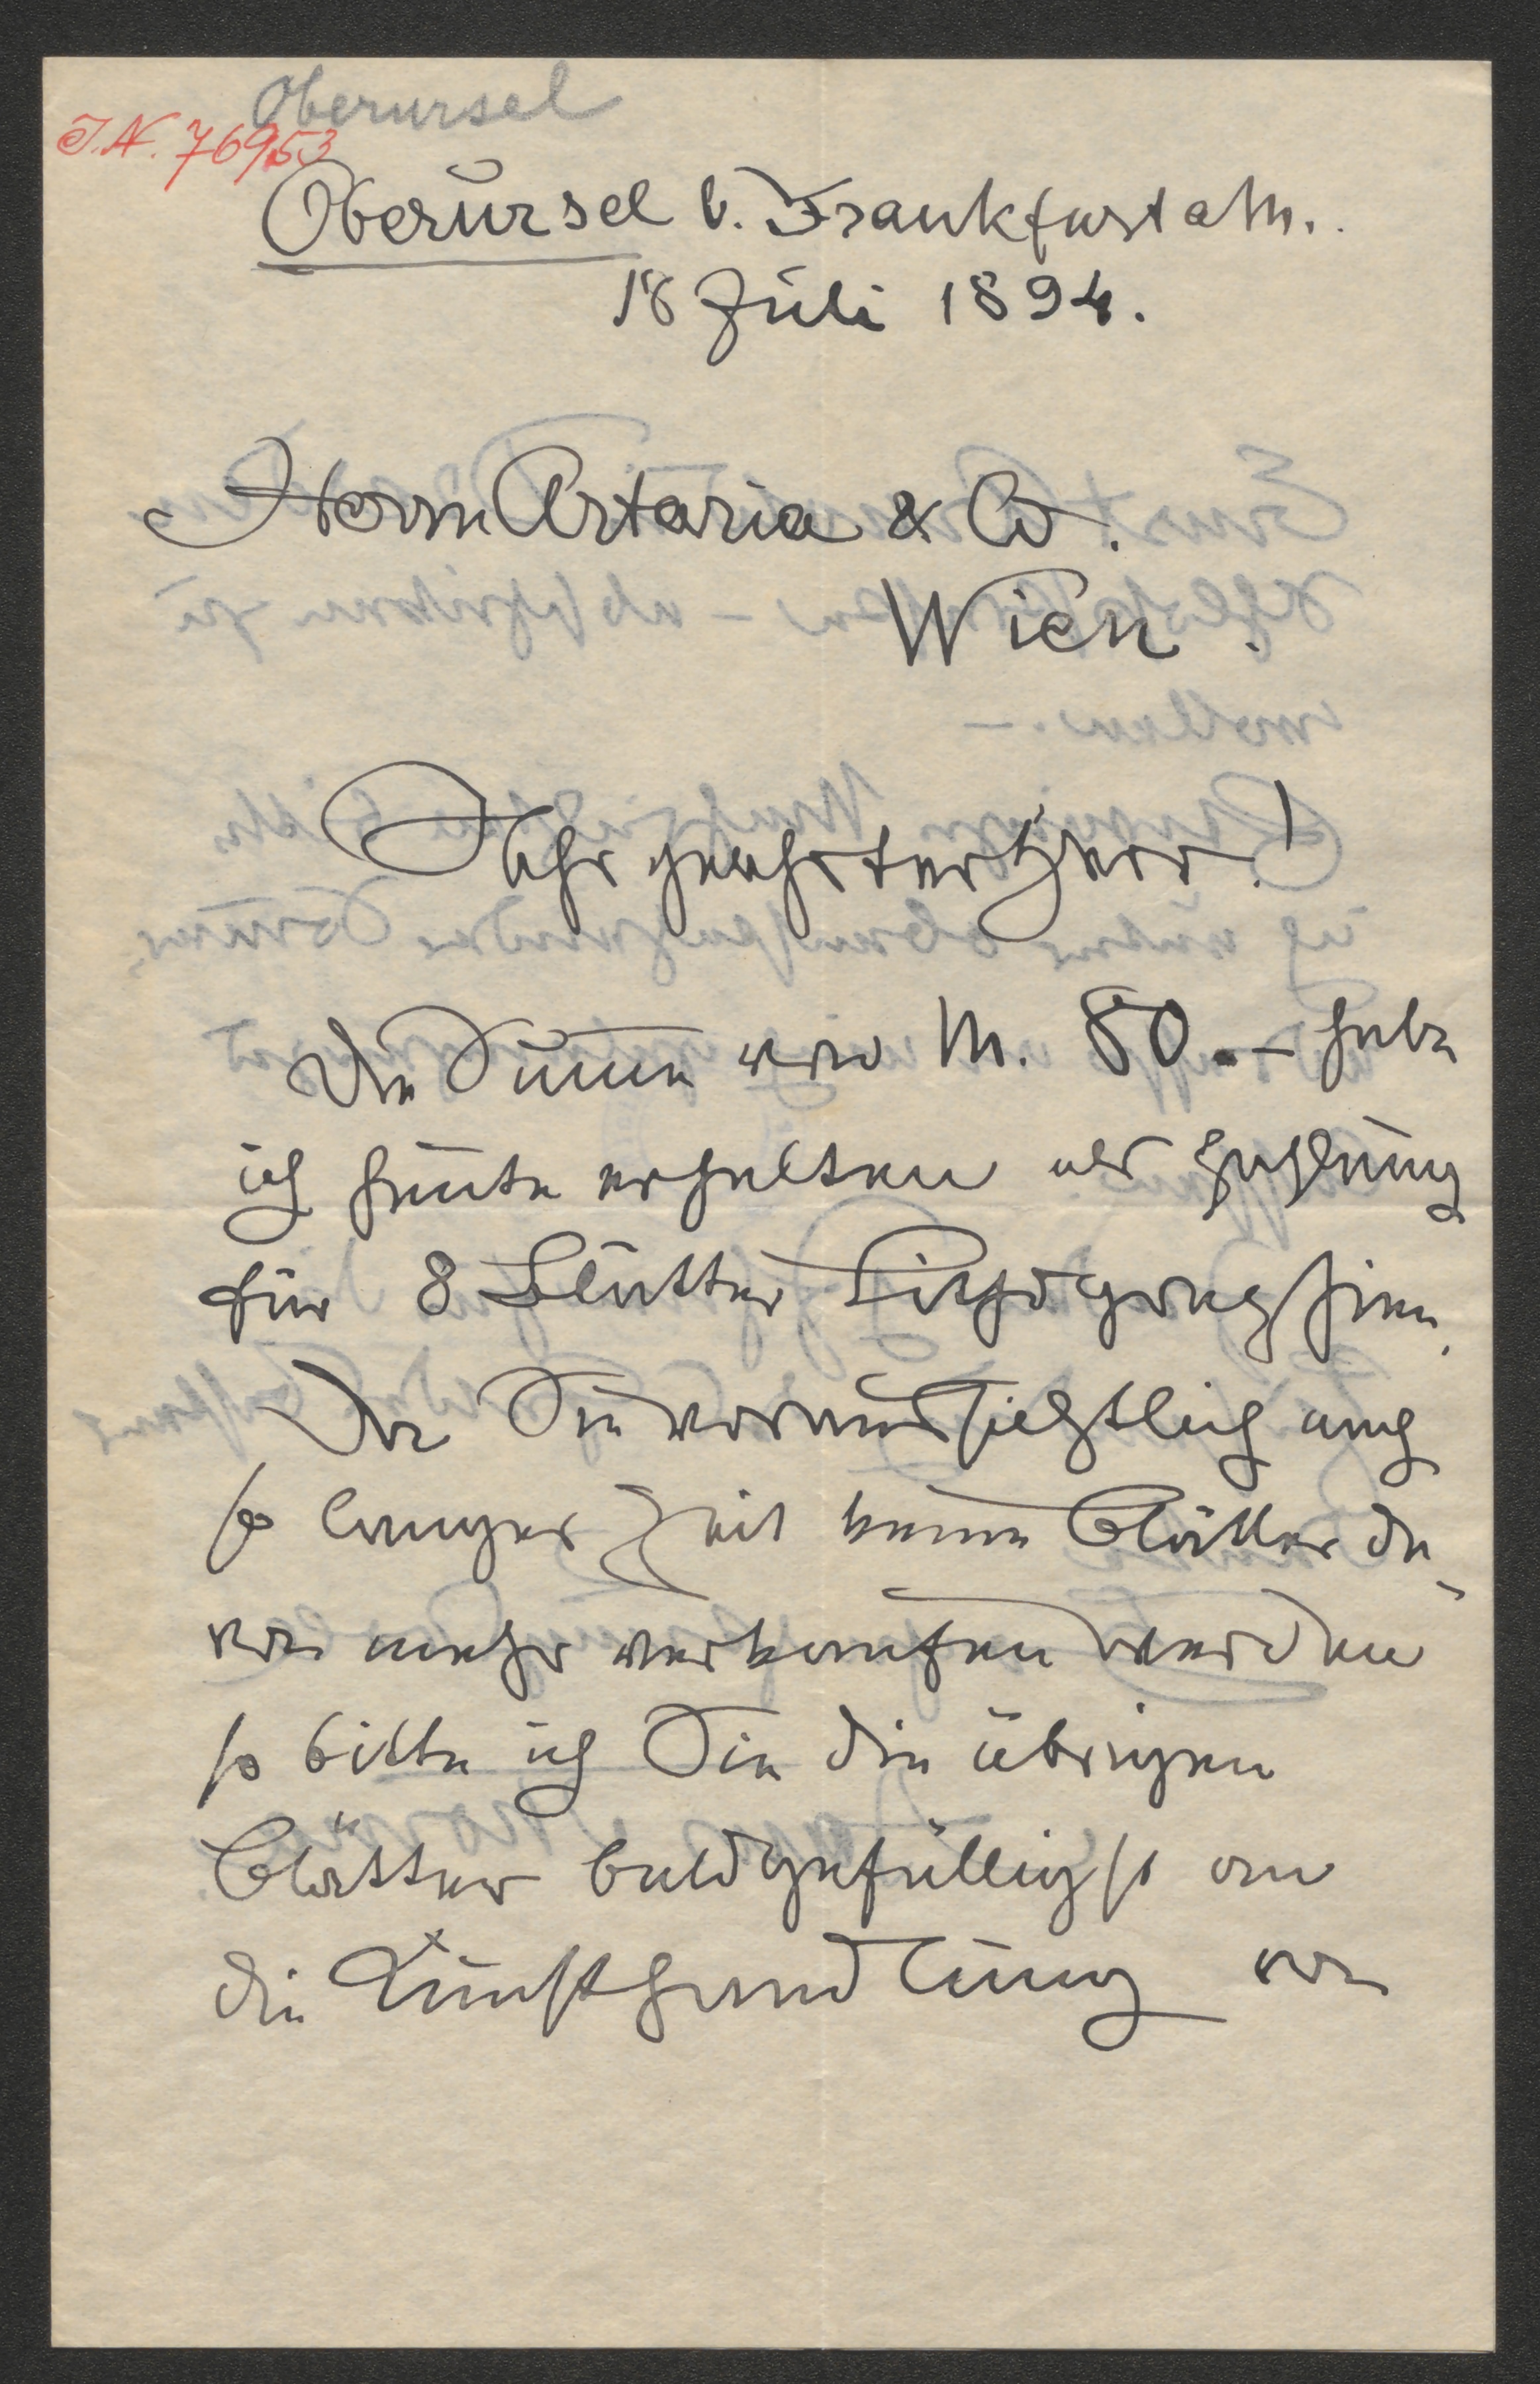 Oberursel
I.N. 76953
Oberursel b. Frankfurt a M.
18 Juli 1894.
Herrn Artaria & Co.
Wien.
Sehr geehrter Herr!
Die Summe von M. 80.– habe
ich heute erhalten als Zahlung
für 8 Blätter Lithographien.
Da Sie voraussichtlich nach
so langer Zeit keine Blätter da-
von mehr verkaufen werden
so bitte ich Sie die übrigen
Blätter baldgefälligst an
die Kunsthandlung von